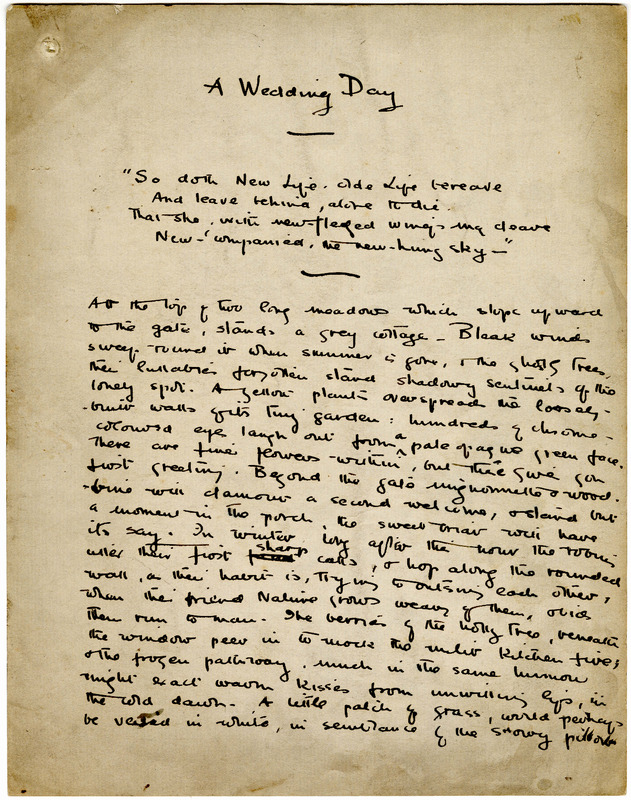 A Wedding Day
"So doth New Life, olde Life bereave
And leave behind, alone to die.
That she, with new-fledged wings may cleave
New-'companied, the new-hung sky—"
At the top of two long meadows which slope upward
to the gate, stands a grey cottage - Bleak winds
sweep round it when summer is gone, & the ghostly trees,
their lullabies forgotten stand shadowy sentinels of the
lonely spot. A yellow plant overspread the loosely-
-built walls of its tiny garden: hundreds of chrome-
coloured eyes laugh out from a pale opaque green face.
There are finer flowers within, but these give you
first greeting. Beyond the gate mignonette & wood-
-bine will clamour a second welcome, & stand but
a moment in the porch, the sweet-briar will have
its say. In winter, long after this hour the robins
utter their first sharp calls, & hop along the rounded
wall, as their habit is, trying to outsing each other,
when their friend Nature grows weary of them, & bids
them run to man. The berries of the holly tree, beneath
the window peer in to mock the unlit kitchen fire;
& the frozen pathway, much in the same humour
might exact warm kisses from unwilling lips, in
the cold dawn. A little patch of grass, would perhaps
be veiled in white, in semblance of the snowy pillow